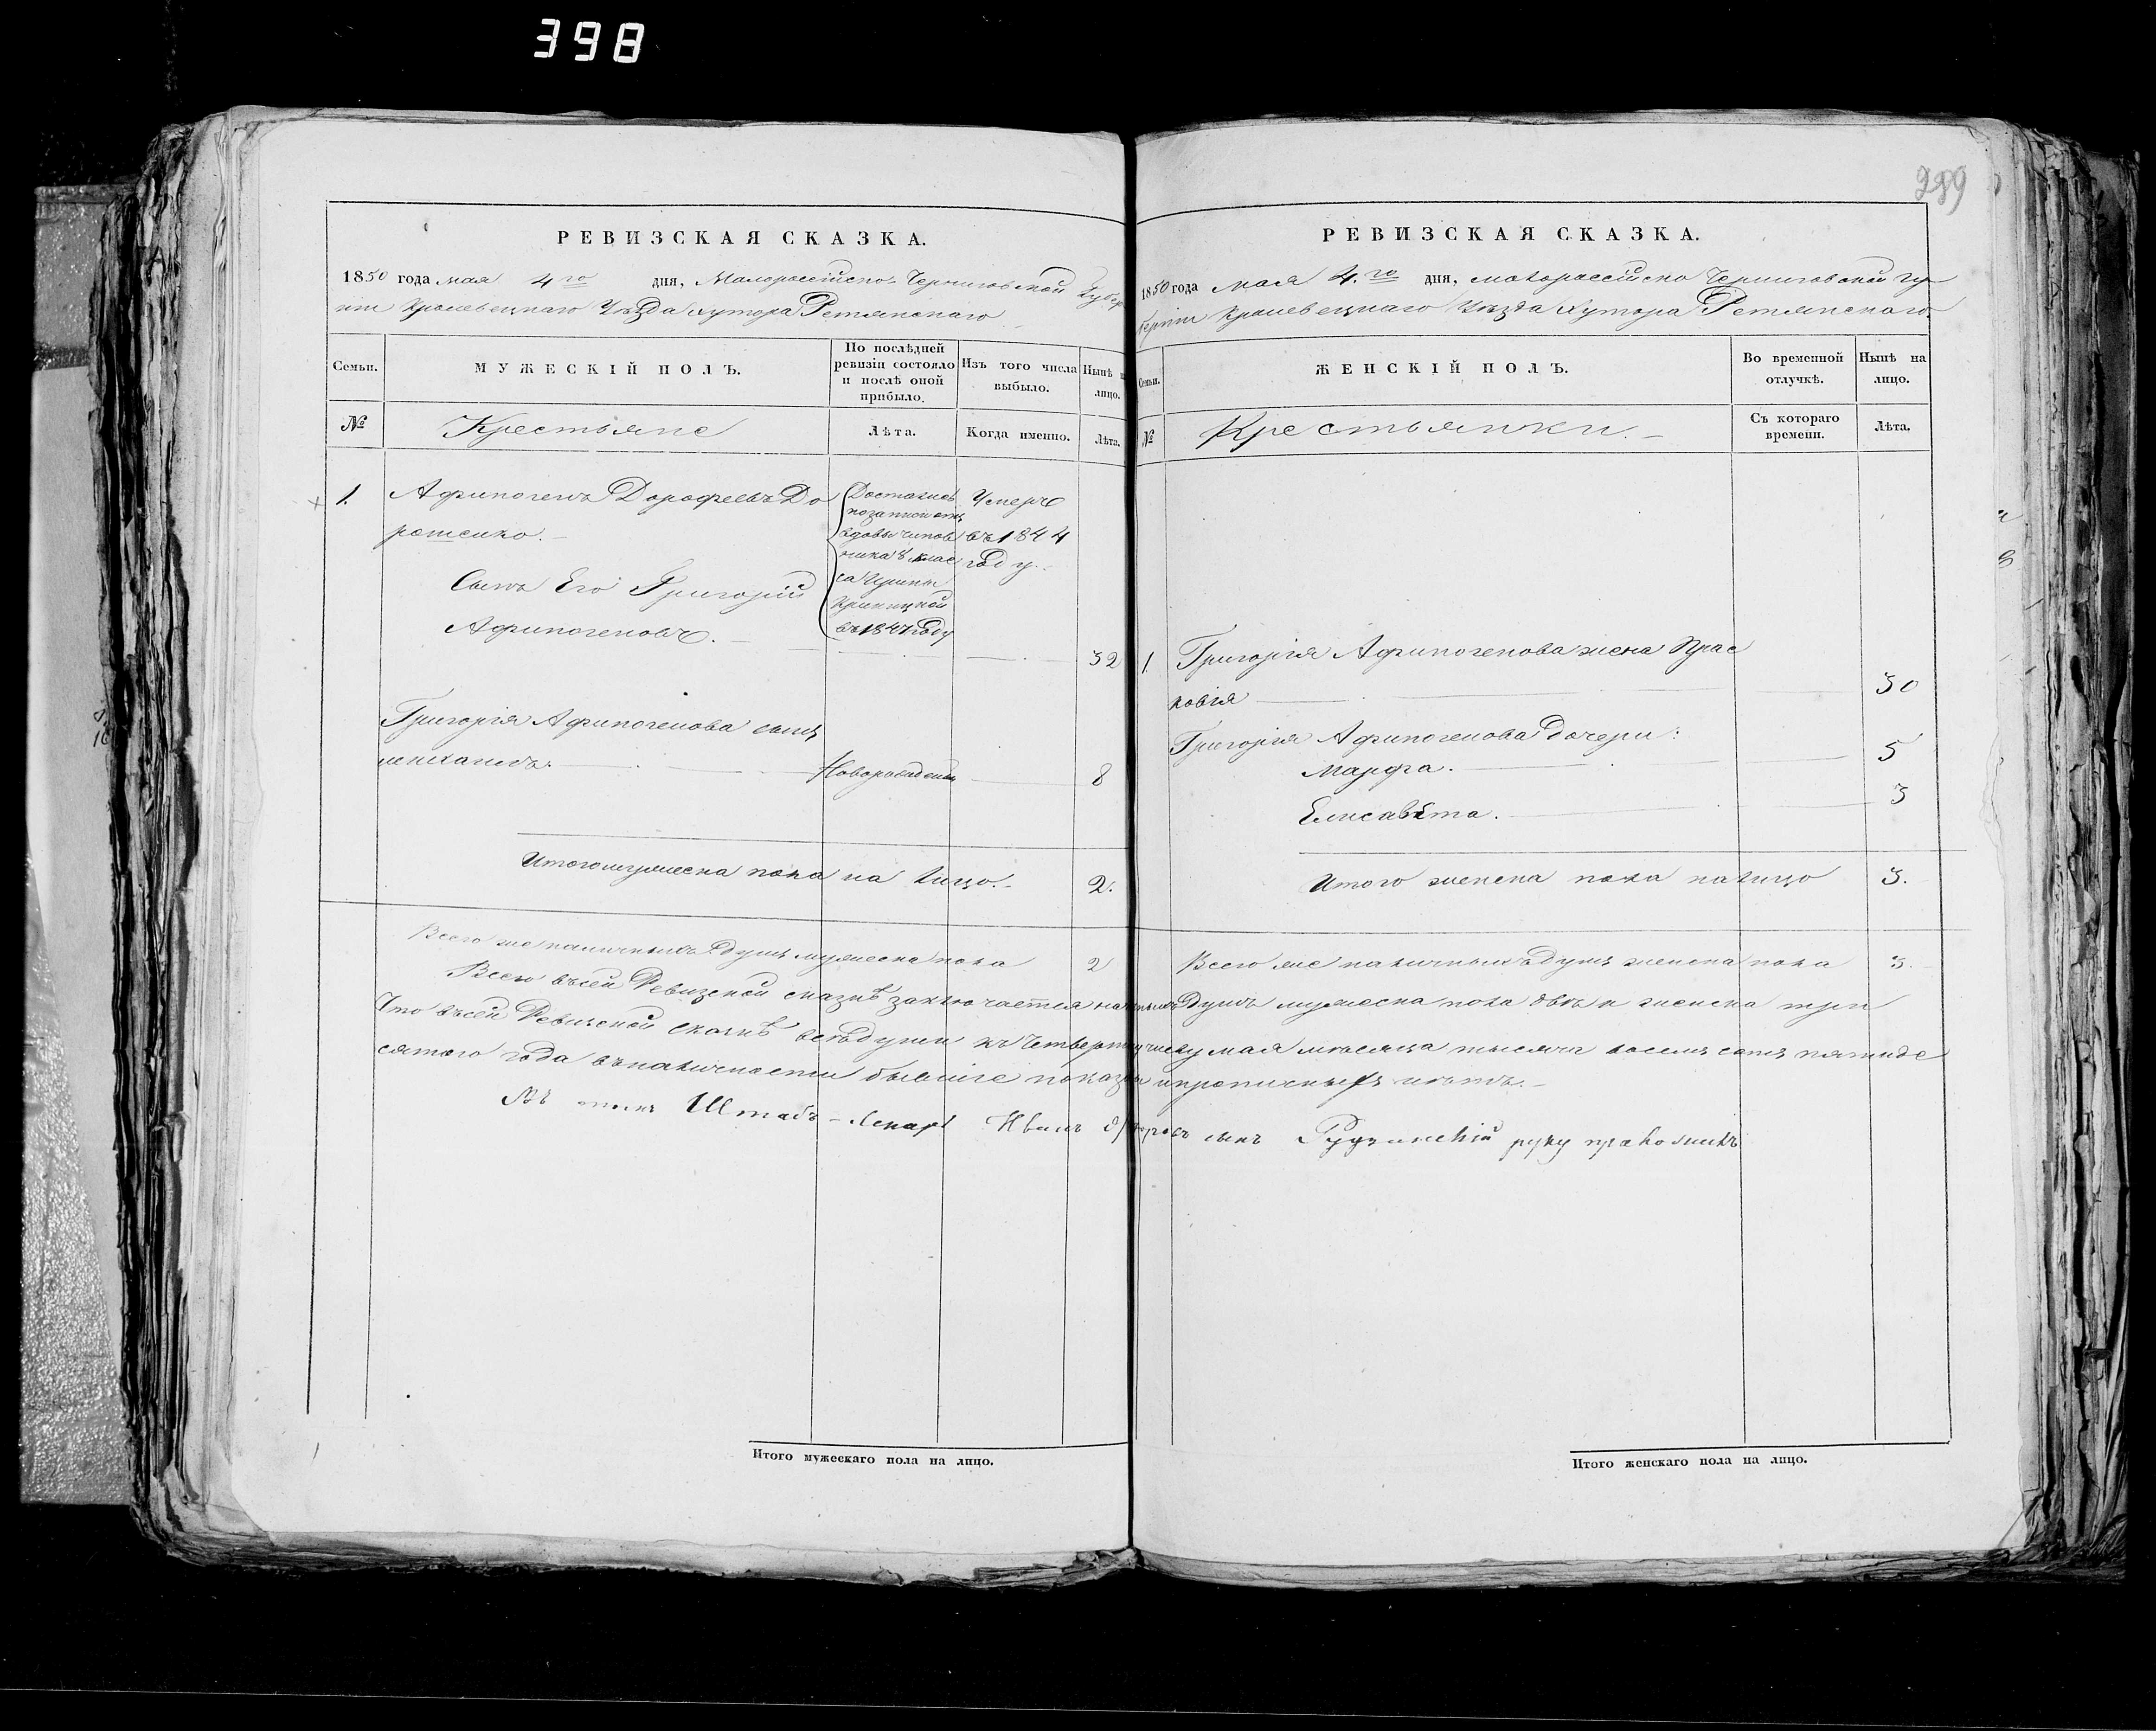 398
289
РЕВИЗСКАЯ СКАЗКА.
1850 года мая 4го дня, Малороссійско Черниговской Губер
ніи Кролевецкаго Уѣзда Хутора Ретянскаго
Семьи.
МУЖЕСКІЙ ПОЛЪ.
По послѣдней ревизіи состояло и послѣ оной прибыло.
Изъ того числа выбыло.
Нынѣ на лицо.
№
Крестьяне
Лѣта.
Когда именно.
Лѣта.
1. Афиногенъ Дорофеевъ До
рошенко.
Достались
вдовы чинов
ника 8 клас
са Ирины
Криницкой
въ 1847 году
Умеръ
въ 1844
году.
Сынъ Его Григорій
Афиногеновъ.
32
Григорія Афиногенова сынъ
Новорожденъ 8
Итого мужеска пола на лицо. 2.
Всего же наличныхъ душъ мужеска пола 2
РЕВИЗСКАЯ СКАЗКА.
1850 года Мая 4.го дня, малороссійско Черниговской Гу
берніи Кролевецкаго Уѣзда Хутора Ретянскаго
Семьи.
ЖЕНСКІЙ ПОЛЪ.
Во временной отлучкѣ.
Нынѣ на лицо.
№
Крестьянки.
Съ котораго времени.
Лѣта.
1. Григорія Афиногенова жена Прас
ковія 30
Григорія Афиногенова дочери:
Марфа. 5
Елисавета. 3
Итого женска пола налицо 3.
Всего же наличныхъ душъ женска пола 3.
Всего въ сей Ревизской сказкѣ заключается наличныхъ душъ мужеска пола двѣ и женска три
Что въ сей Ревизской сказкѣ всѣ души къ четвертому числу мая мѣсяца тысяча восемь сотъ пятиде
сятого года въ наличности бывшіе показаны и прописныхъ нѣтъ.
Въ томъ Штабъ-Лекарь Иванъ сынъ руку приложилъ
Итого мужескаго пола на лицо.
Итого женскаго пола на лицо.